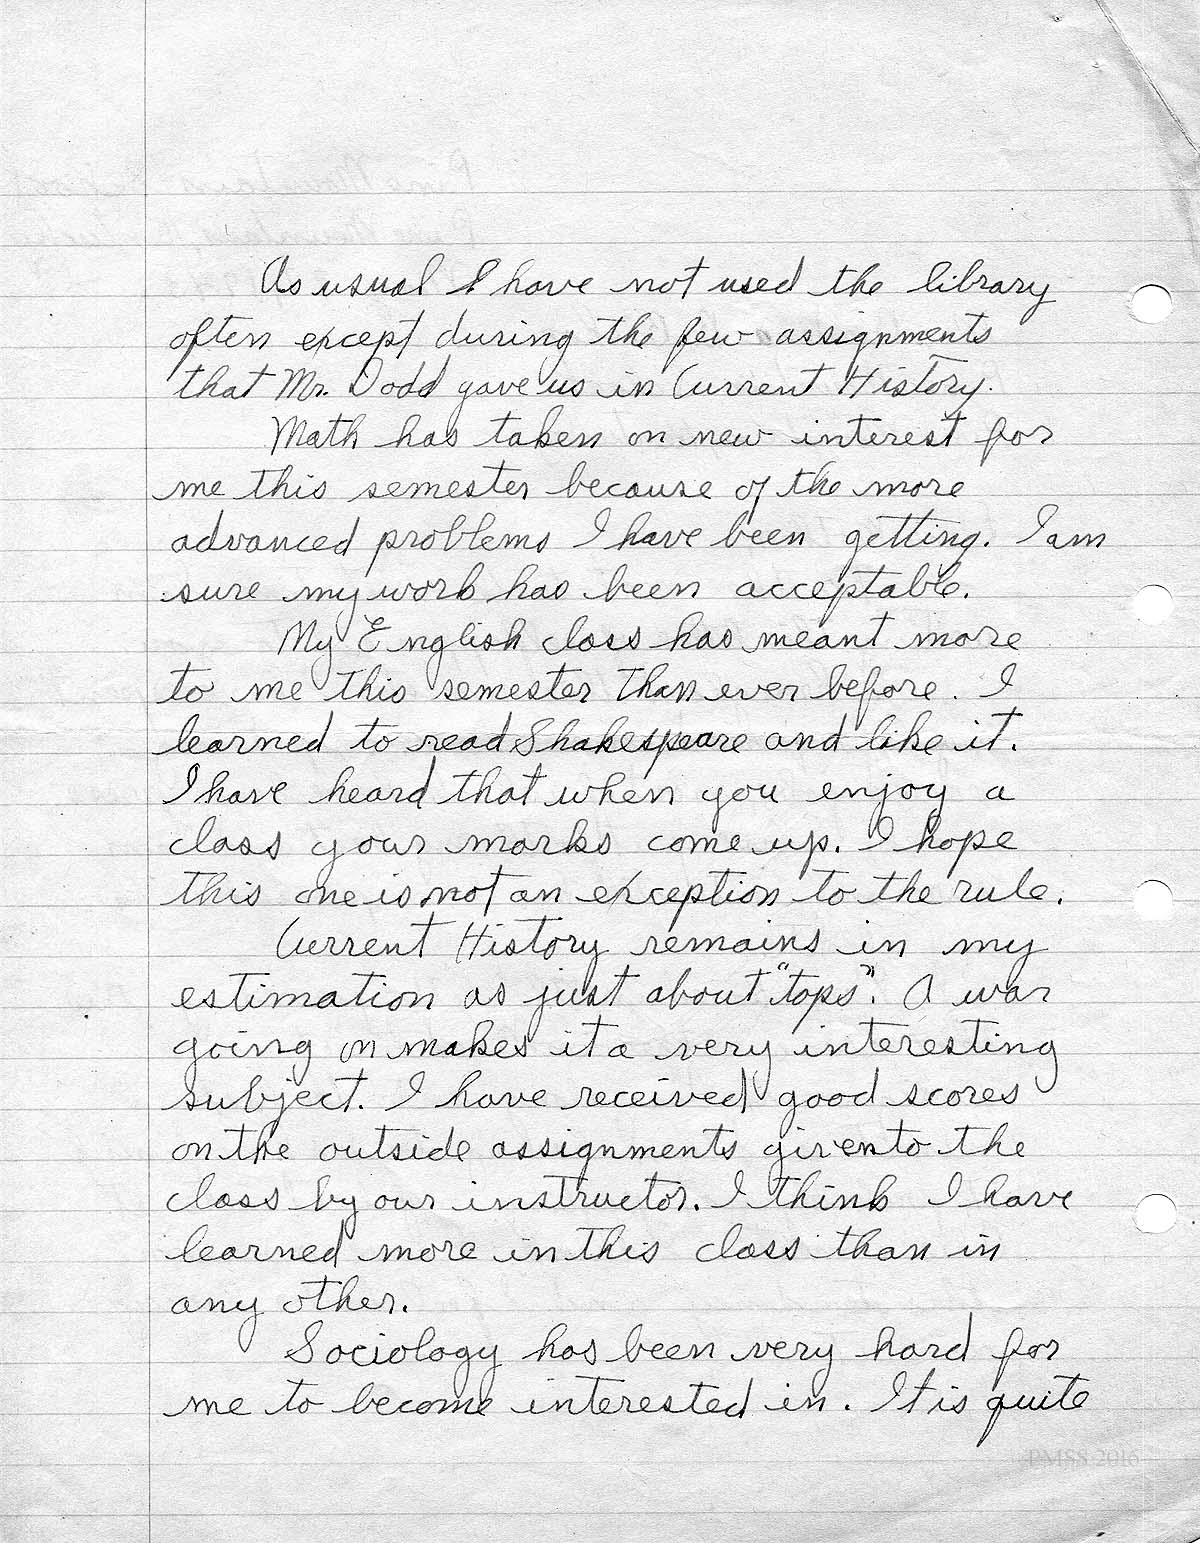 As usual I have not used the library
often except during the few assignments
that Mr. Dodd gave us in Current History.
Math has taken on new interest for
me this semester because of the more
advanced problems I have been getting. I am
sure my work has been acceptable.
My English class has meant more
to me this semester than ever before. I
learned to read Shakespeare and like it.
I have heard that when you enjoy a
class your marks come up. I hope
this one is not an exception to the rule.
Current History remains in my
estimation as just about "tops". A war
going on makes it a very interesting
subject. I have received good scores
on the outside assignments given to the
class by our instructor. I think I have
learned more in this class than in
any other.
Sociology has been very hard for
me to become interested in. It is quite
PMSS 2016